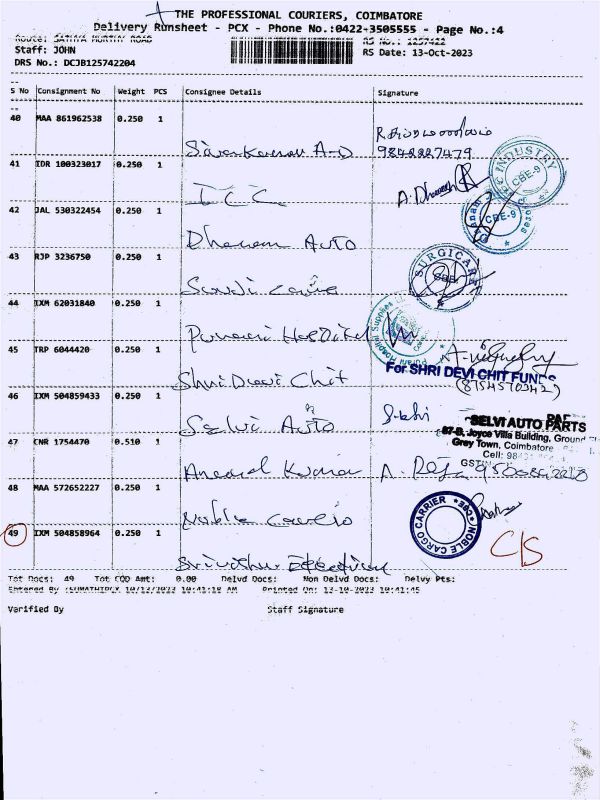 THE PROFESSIONAL COURIERS, COIMBATORE
Delivery Runsheet - PCX - Phone No.:0422-3505555 - Page No.:4
Route: SATHYA MURTHY ROAD
RS No.: 1257422
Staff: JOHN
RS Date: 13-Oct-2023
DRS No.: DCJB125742204
S No Consignment No Weight PCS Consignee Details Signature
40 MAA 861962538 0.250 1
9842227479
41 IDR 100323017 0.250 1
ICC A. Dhanesh
INDUSTRY CBE-9
42 JAL 530322454 0.250 1
Dhanam Auto
CBE-9
43 RJP 3236750 0.250 1
SURGICARE CBE
44 IXM 62031840 0.250 1
Purani Hospital
Purani Hospital Supplies
45 TRP 6044420 0.250 1
Shri Devi Chit
For SHRI DEVI CHIT FUNDS
46 IXM 504859433 0.250 1
Selvi Auto
SELVI AUTO PARTS
87-B, Joyce Villa Building, Ground
Grey Town, Coimbatore
Cell: 984
GSTIN
47 CNR 1754470 0.510 1
Anand Kumar A. Raja
48 MAA 572652227 0.250 1
Noble Cargo
NOBLE CARGO CARRIER CBE
49 IXM 504858964 0.250 1
C/S
Tot Docs: 49 Tot COD Amt: 0.00 Delvd Docs: Non Delvd Docs: Delvy Pts:
Entered By :SUMATHIPCX 10/13/2023 10:41:18 AM Printed On: 13-10-2023 10:41:45
Verified By Staff Signature